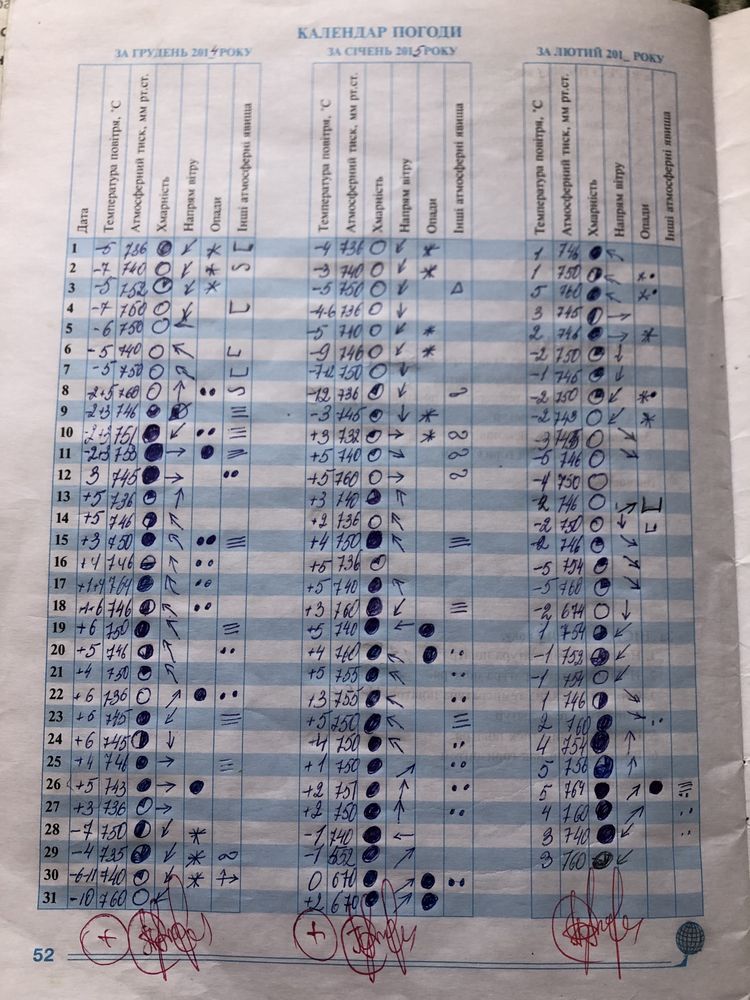 КАЛЕНДАР ПОГОДИ
ЗА ГРУДЕНЬ 2014 РОКУ ЗА СІЧЕНЬ 2015 РОКУ ЗА ЛЮТИЙ 201_ РОКУ
Дата Температура повітря, °С Атмосферний тиск, мм рт.ст. Хмарність Напрям вітру Опади Інші атмосферні явища Температура повітря, °С Атмосферний тиск, мм рт.ст. Хмарність Напрям вітру Опади Інші атмосферні явища Температура повітря, °С Атмосферний тиск, мм рт.ст. Хмарність Напрям вітру Опади Інші атмосферні явища
1 -5 736 -4 736 1 746
2 -7 740 -3 740 1 750
3 -5 752 -5 750 5 760
4 -7 750 736 3 745
5 -6 750 -5 740 2 746
6 -5 740 -9 746 -2 750
7 -5 750 750 -1 745
8 760 -12 736 -2 750
9 746 -3 745 -2 743
10 751 +3 732 -3
11 +5 740 -5 746
12 3 745 +5 760 750
13 +5 736 +3 740 746
14 +5 746 +2 736 -2 750
15 +3 750 +4 750 746
16 +4 746 +5 736 -5 754
17 764 +5 740 -5 760
18 746 +3 760 -2 674
19 +6 750 +5 740 1 754
20 +5 746 +4 760 -1 752
21 +4 750 +5 755 -1 754
22 +6 736 +3 755 1 746
23 745 +5 750 2 760
24 +6 745 750 4 754
25 +4 746 +1 750 5 756
26 +5 743 +2 751 5 764
27 +3 736 +2 750 4 760
28 -7 750 -1 740 3 740
29 -4 735 -1 3 760
30 740 0 670
31 -10 760 +2 670
52